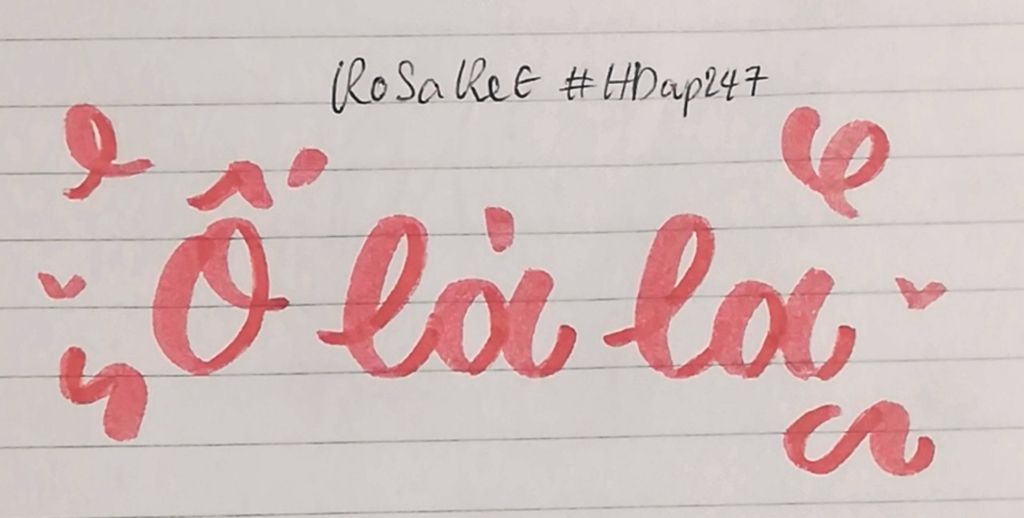 RoSaReE #HDap247
Ố là la